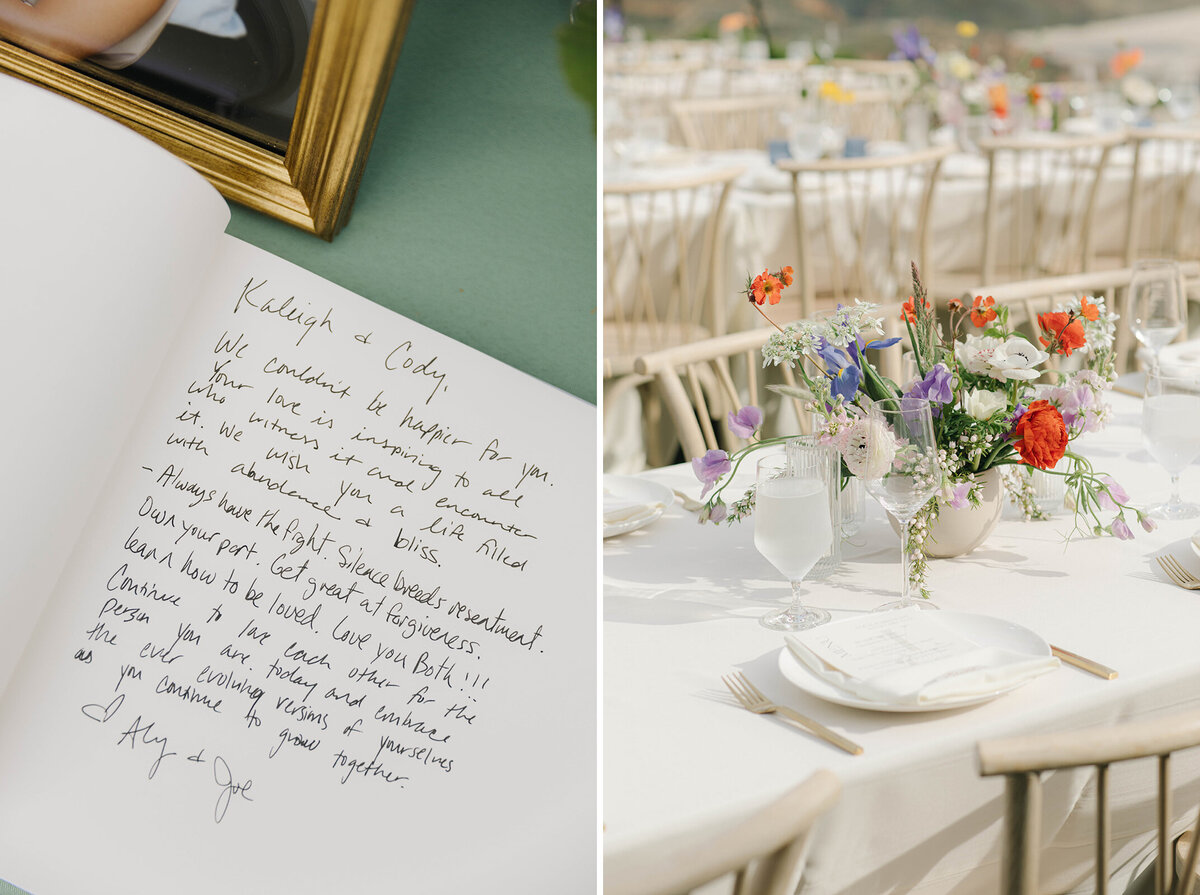 Kaleigh & Cody,
We couldn't be happier for you.
Your love is inspiring to all
who witness it and encounter
it. We wish you a life filled
with abundance & bliss.
- Always have the fight. Silence breeds resentment.
Own your part. Get great at forgiveness.
Learn how to be loved. Love you Both!!!
Continue to love each other for the
person you are today and embrace
the ever evolving versions of yourselves
as you continue to grow together.
♡ Aly & Joe
MENU